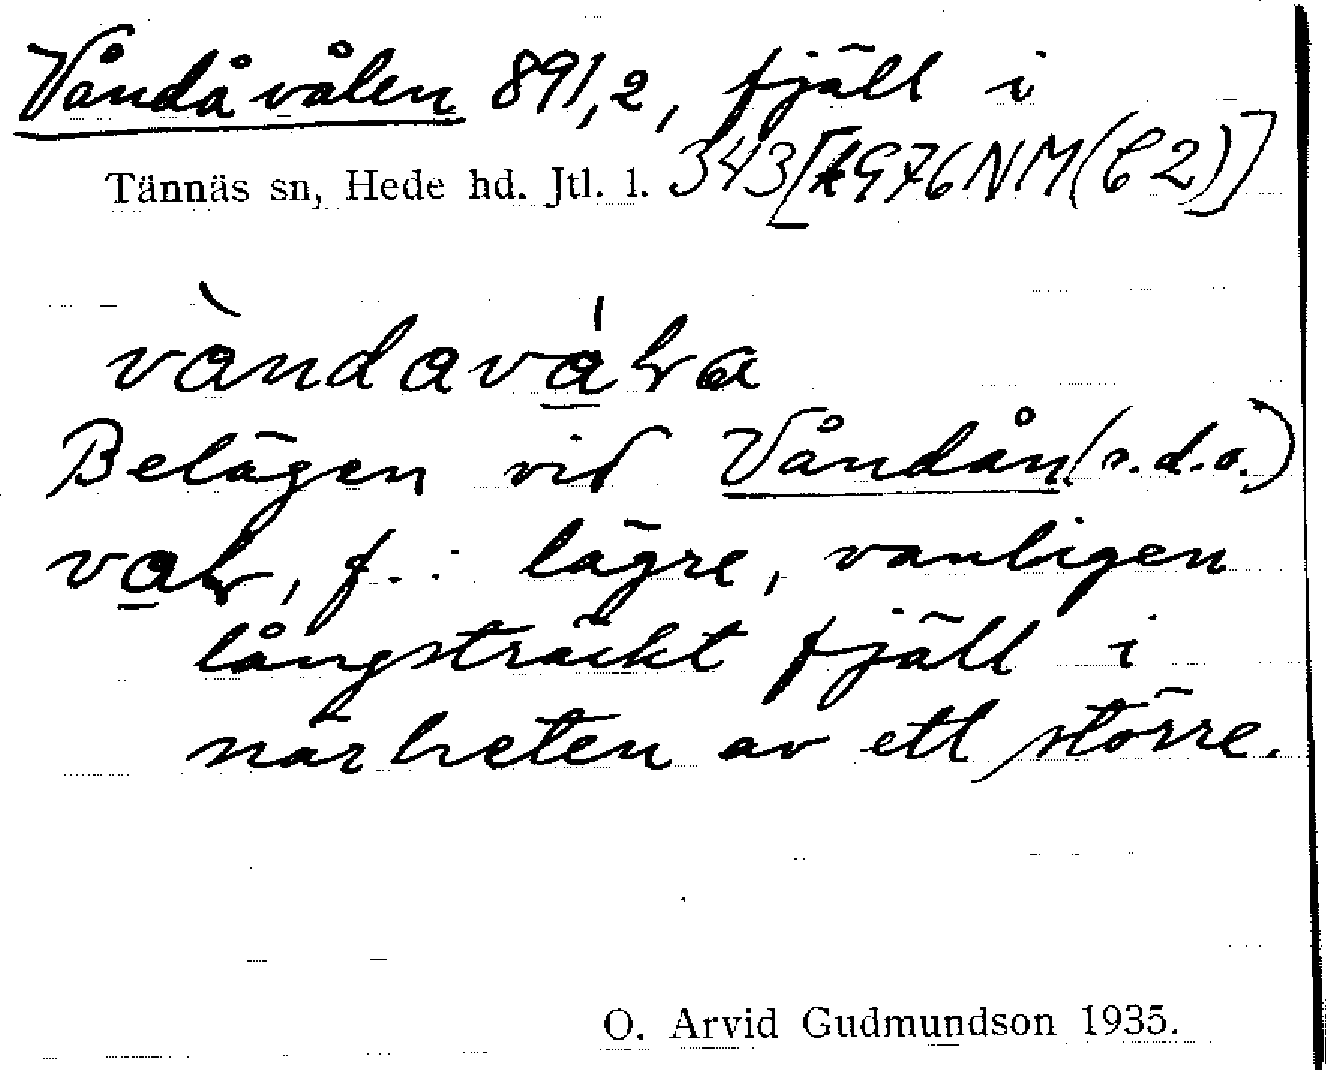 Våndåvålen 891,2, fjäll i
Tännäs sn, Hede hd. Jtl. l. 343[1976NM(C2)]
vàndaválra
Belägen vid Våndån (s.d.o.)
valr, f.: lägre, vanligen
långsträckt fjäll i
närheten av ett större.
O. Arvid Gudmundson 1935.